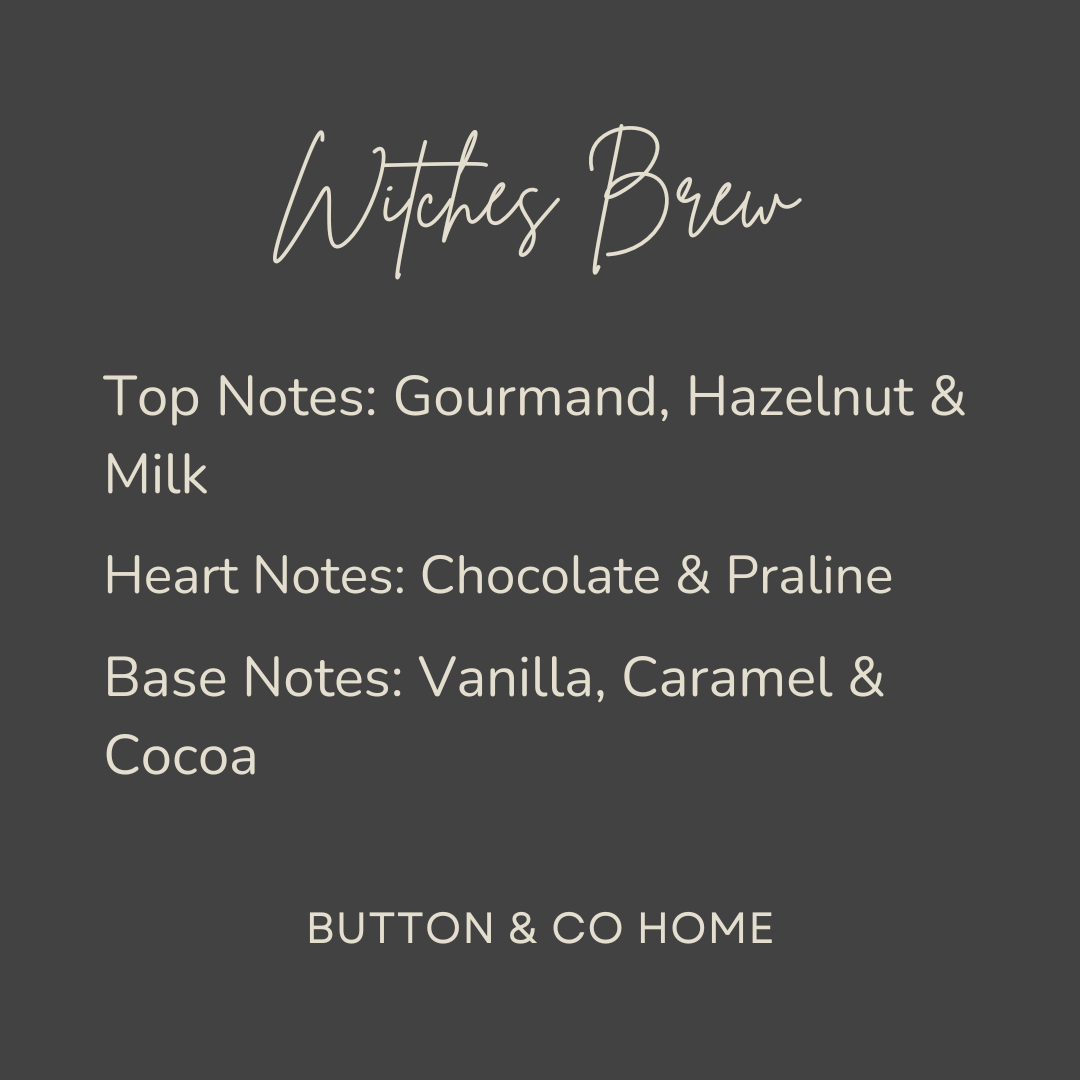 Witches Brew
Top Notes: Gourmand, Hazelnut &
Milk
Heart Notes: Chocolate & Praline
Base Notes: Vanilla, Caramel &
Cocoa
BUTTON & CO HOME